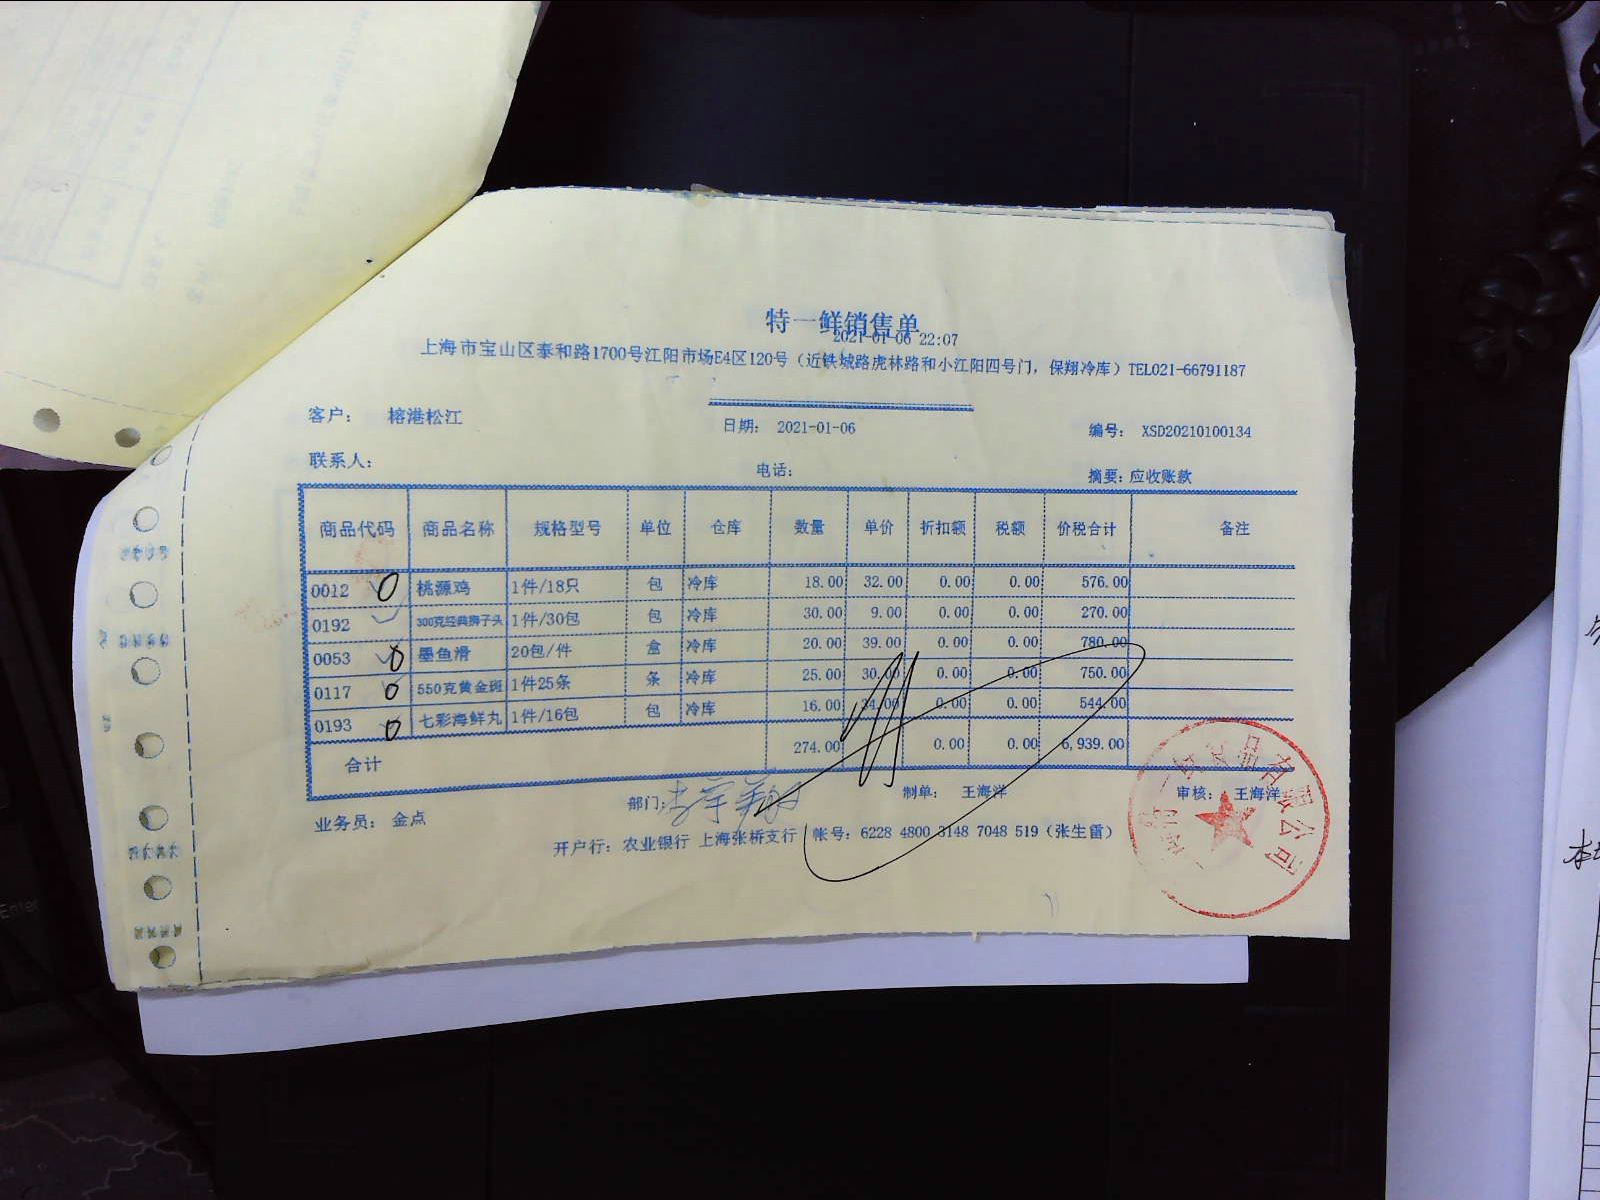 特一鲜销售单
2021-01-06 22:07
上海市宝山区泰和路1700号江阳市场E4区120号（近铁城路虎林路和小江阳四号门，保翔冷库）TEL021-66791187
客户： 榕港松江 日期： 2021-01-06 编号： XSD20210100134
联系人： 电话： 摘要：应收账款
商品代码 商品名称 规格型号 单位 仓库 数量 单价 折扣额 税额 价税合计 备注
0012 桃源鸡 1件/18只 包 冷库 18.00 32.00 0.00 0.00 576.00
0192 300克经典狮子头 1件/30包 包 冷库 30.00 9.00 0.00 0.00 270.00
0053 墨鱼滑 20包/件 盒 冷库 20.00 39.00 0.00 0.00 780.00
0117 550克黄金斑 1件25条 条 冷库 25.00 30.00 0.00 0.00 750.00
0193 七彩海鲜丸 1件/16包 包 冷库 16.00 34.00 0.00 0.00 544.00
合计 274.00 0.00 0.00 6,939.00
业务员： 金点 部门： 制单： 王海洋 审核： 王海洋
开户行：农业银行 上海张桥支行 帐号：6228 4800 3148 7048 519（张生雷）
有限公司
Enter